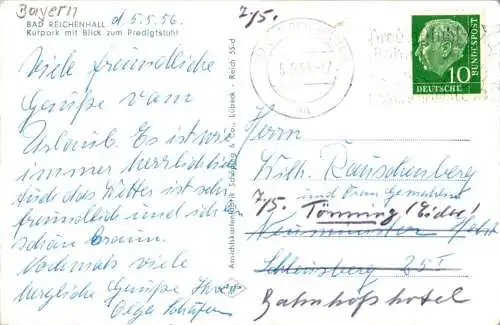 Bayern
BAD REICHENHALL d. 5.5.56.
Kurpark mit Blick zum Predigtstuhl
Viele freundliche
Grüße vom
Urlaub. Es ist wie
immer herrlich hier
Auch das Wetter ist sehr
freundlich und ich
schön braun.
Nochmals viele
herzliche Grüße Ihre
Olga Schäfer
Ansichtskartenfabrik Schöning & Co., Lübeck - Reich 55-d
7/5.
10
DEUTSCHE
BUNDESPOST
Herrn
Wilh. Rauschenberg
und Frau Gemahlin
7/5. Tönning (Eider)
Neumünster
Schleusberg 25 I
Bahnhofshotel